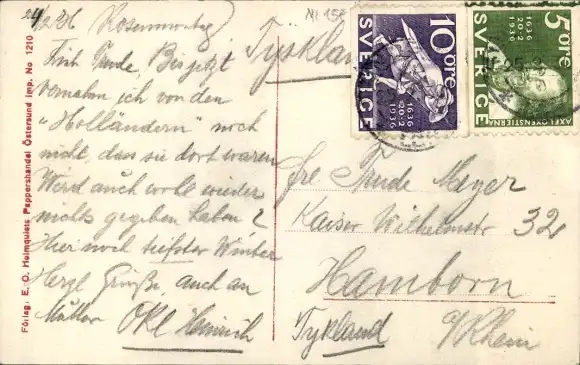 24/2 36 Rosenmontag
Tyskland
Früh Trude, Bis jetzt
vernahm ich von den
"Holländern" noch
nicht, dass sie dort waren
Wird auch wohl wieder
nichts gegeben haben?
Hier noch tiefster Winter
Herzl Grüße, auch an
Mutter OKL Heinrich
Förlag: E. O. Helmquists Pappershandel Östersund Imp. No 1210
10 ÖRE
SVERIGE
1636
20-2
1936
5 öre
SVERIGE
1636
20-2
1936
AXEL OXENSTIERNA
Frl Trude Meyer
Kaiser Wilhelmstr 32
Hamborn
Tyskland
a/Rhein